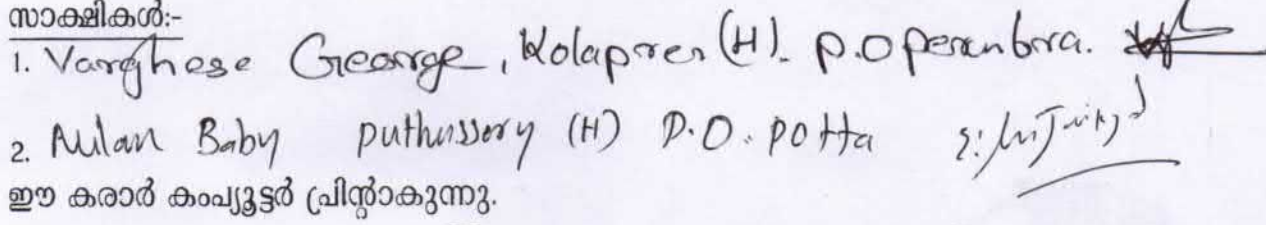 സാക്ഷികൾ:-
1. Varghese George, Kolaprer (H). P.O perenbra.
2. Milan Baby puthussery (H) P.O. potta
ഈ കരാർ കംപ്യൂട്ടർ പ്രിന്റാകുന്നു.